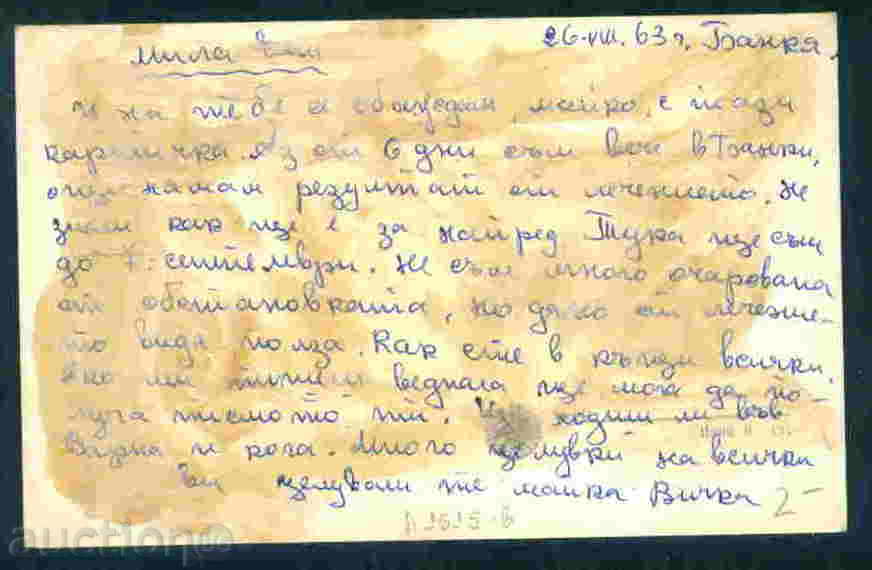 26-VIII. 63 г. Банкя.
Мила
и на тебе се обаждам, майко, с тази
картичка. Аз от 6 дни съм вече в Банкя,
още нямам резултат от лечението. Не
зная как ще е за напред Тука ще съм
до 7. септември. Не съм много очарована
от обстановката, но дано от лечение-
то видя полза. Как сте в къщи всички.
Ако ми пишеш веднага ще мога да по-
луча писмото ти. ходиш ли във
Варна и кога. Много целувки на всички
целувам те майка Вичка 2-
auction